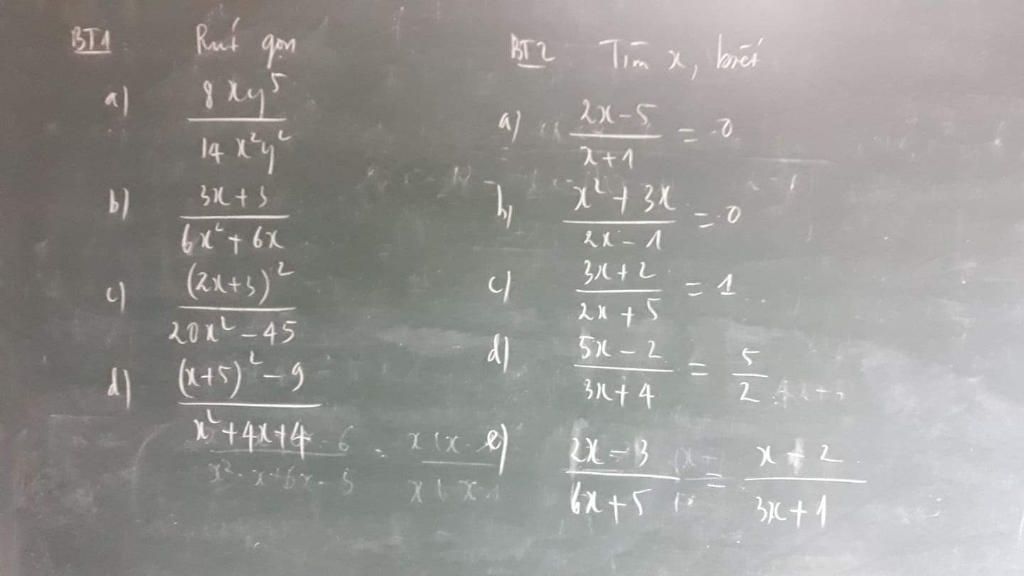 BT1 Rút gọn
a) 8xy⁵ / 14x²y²
b) 3x+3 / 6x²+6x
c) (2x+3)² / 20x²-45
d) (x+5)²-9 / x²+4x+4
BT2 Tìm x, biết
a) 2x-5 / x+1 = 0
b) x²+3x / 2x-1 = 0
c) 3x+2 / 2x+5 = 1
d) 5x-2 / 3x+4 = 5 / 2
e) 2x-3 / 6x+5 = x+2 / 3x+1